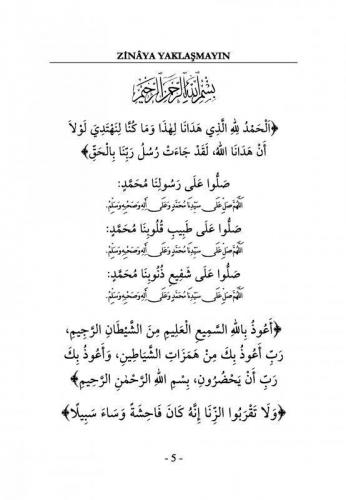 ZİNÂYA YAKLAŞMAYIN
بِسْمِ اللّٰهِ الرَّحْمٰنِ الرَّحِيمِ
﴿اَلْحَمْدُ لِلّٰهِ الَّذِي هَدَانَا لِهٰذَا وَمَا كُنَّا لِنَهْتَدِيَ لَوْلَا
أَنْ هَدَانَا اللهُ، لَقَدْ جَاءَتْ رُسُلُ رَبِّنَا بِالْحَقِّ﴾
صَلُّوا عَلَى رَسُولِنَا مُحَمَّدٍ:
اَللّٰهُمَّ صَلِّ عَلَى سَيِّدِنَا مُحَمَّدٍ وَعَلَى اٰلِهِ وَصَحْبِهِ وَسَلِّمْ.
صَلُّوا عَلَى طَبِيبِ قُلُوبِنَا مُحَمَّدٍ:
اَللّٰهُمَّ صَلِّ عَلَى سَيِّدِنَا مُحَمَّدٍ وَعَلَى اٰلِهِ وَصَحْبِهِ وَسَلِّمْ.
صَلُّوا عَلَى شَفِيعِ ذُنُوبِنَا مُحَمَّدٍ:
اَللّٰهُمَّ صَلِّ عَلَى سَيِّدِنَا مُحَمَّدٍ وَعَلَى اٰلِهِ وَصَحْبِهِ وَسَلِّمْ.
﴿أَعُوذُ بِاللهِ السَّمِيعِ الْعَلِيمِ مِنَ الشَّيْطَانِ الرَّجِيمِ،
رَبِّ أَعُوذُ بِكَ مِنْ هَمَزَاتِ الشَّيَاطِينِ، وَأَعُوذُ بِكَ
رَبِّ أَنْ يَحْضُرُونِ، بِسْمِ اللهِ الرَّحْمٰنِ الرَّحِيمِ﴾
﴿وَلَا تَقْرَبُوا الزِّنَا إِنَّهُ كَانَ فَاحِشَةً وَسَاءَ سَبِيلًا﴾
- 5 -